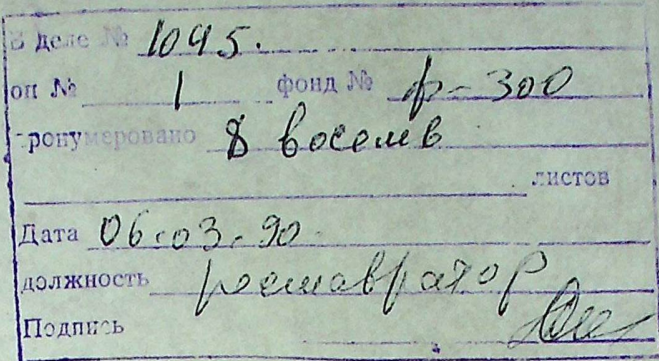 В деле № 1095.
оп № 1 фонд № р-300
пронумеровано 8 восемь
листов
Дата 06.03.90.
должность реставратор
Подпись